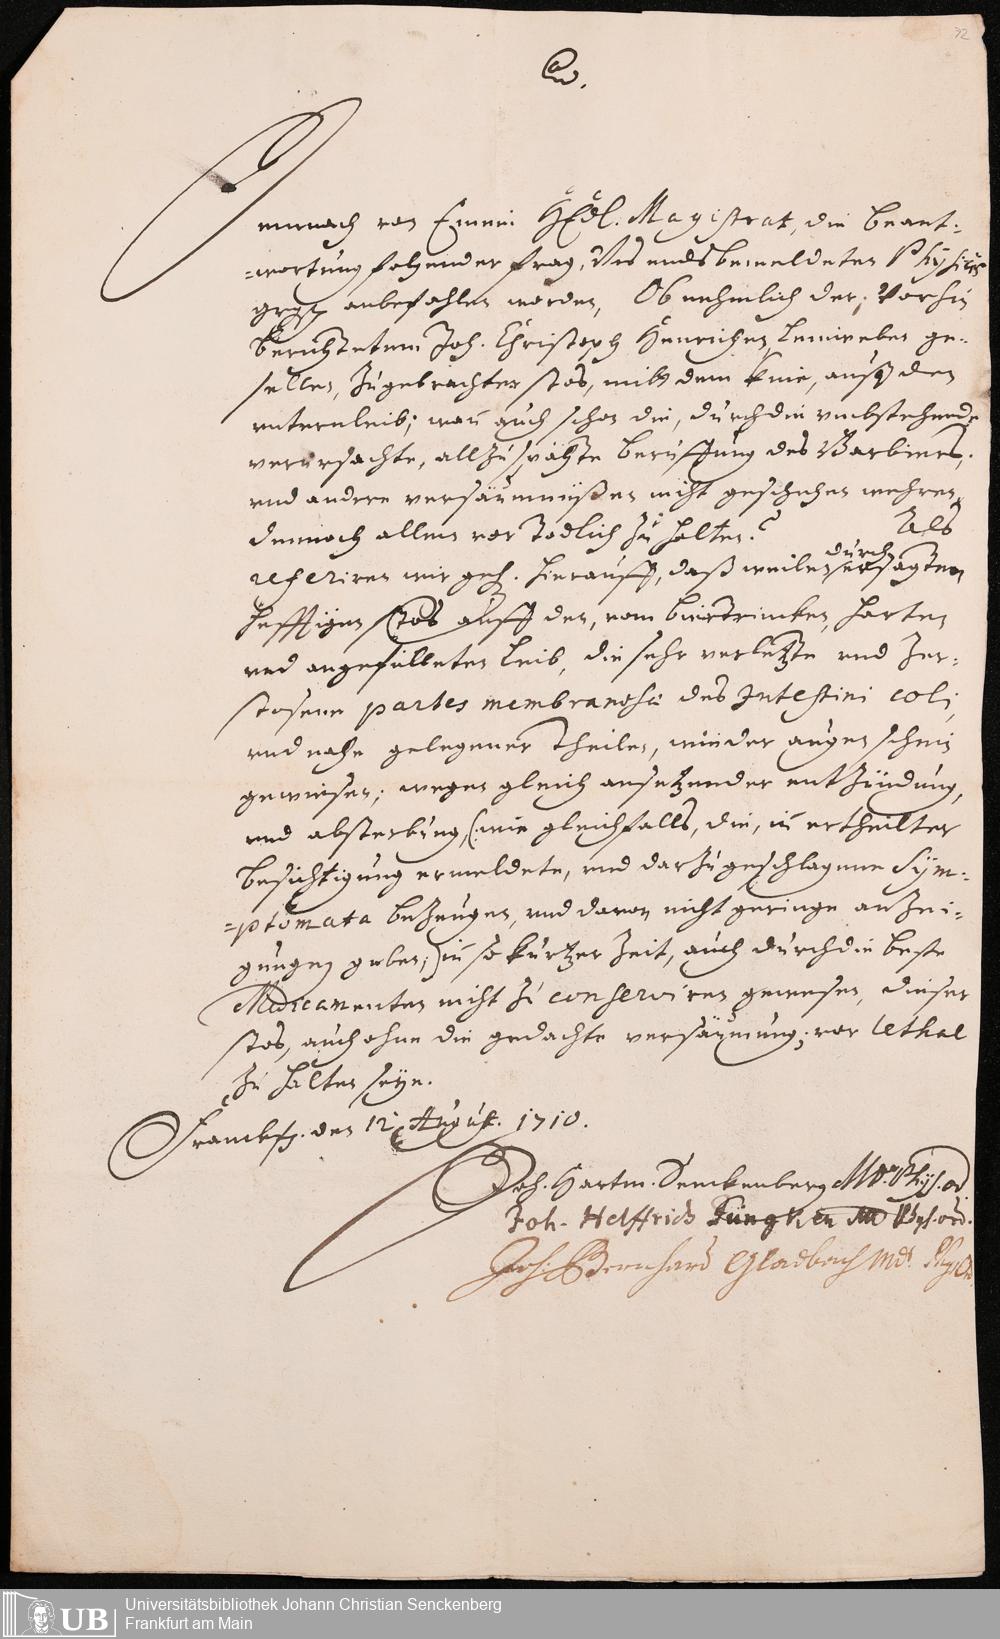 32
Demnach von Einem HEdl. Magistrat, die beant-
=wortung folgender frag, Uns endsbemeldeten Physicis
anbefohlen worden, Ob nehmlich der, Vorhin
berichtetem Joh. Christoph Henrichen, Leinweber ge-
sellen, zugebrachter stos, mitt dem knie, auff den
unternleib; wan auch schon die, durch die umbstehende
verursachte, allzu späthte beruffung des Barbierers,
und andere versäumnüßen nicht geschehen wehren,
dennoch allein vor Todlich zu halten? Als
referiren wir geh. hierauff, daß weilen durch ersagten
hefftigen stos auff den, vom biertrincken, harten
und angefülleten Leib, die sehr verletzte und zer-
stosene partes membranosæ des Intestini coli,
und nahe gelegener theilen, wie der augen schein
gewiesen; wegen gleich ansetzender entzündung,
und absterbung, (: wie gleichfalls, die, in ertheilter
besichtigung vermeldete, und darzu geschlagene Sym-
=ptomata bezeugen, und davon nicht geringe anzei-
gungen geben;) in so kurtzer Zeit, auch durch die beste
Medicamenten nicht zu conserviren gewesen, dieser
stos, auch ohne die gedachte versäumung, vor lethal
zu halten seye.
Franckf. den 12. August. 1710.
Joh. Hartm. Senckenberg MD. Phys. ord.
Joh. Helffrich Jüngken MD Phys. ord.
Joh: Bernhard Gladbach MD. Phys. Ord.
UB
Universitätsbibliothek Johann Christian Senckenberg
Frankfurt am Main